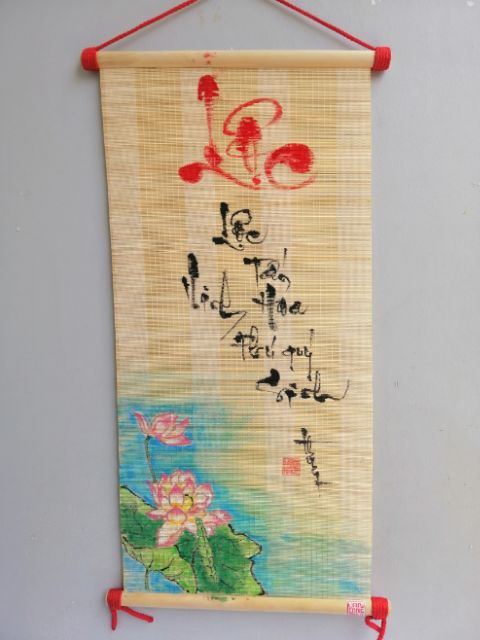 Lộc
Lộc
Tấn
Vinh Hoa
phú quý
Sinh